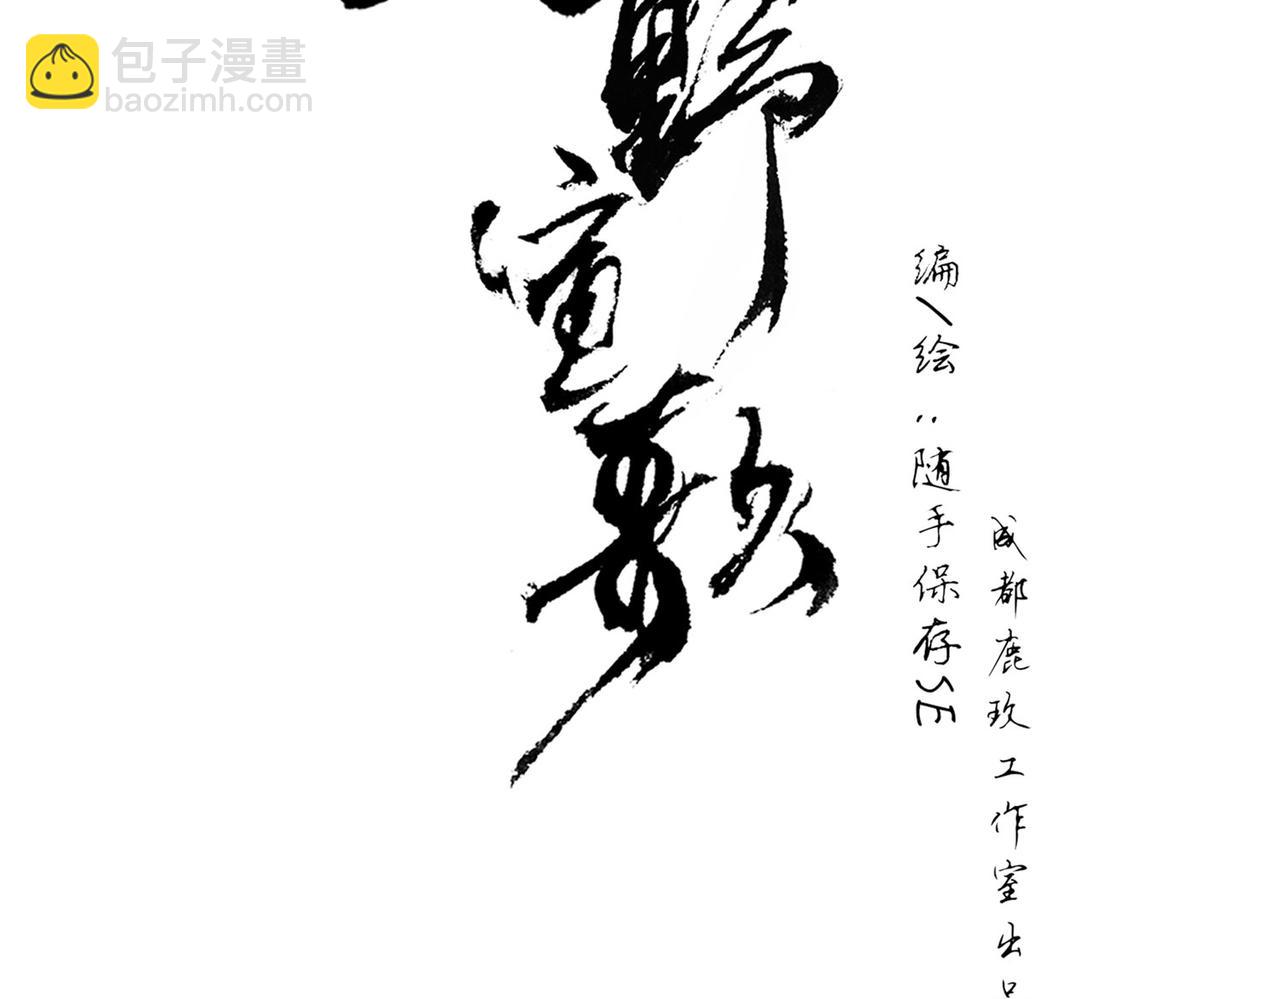 包子漫畫
baozimh.com
野
宣
编/绘:随手保存SE
成都鹿玖工作室出